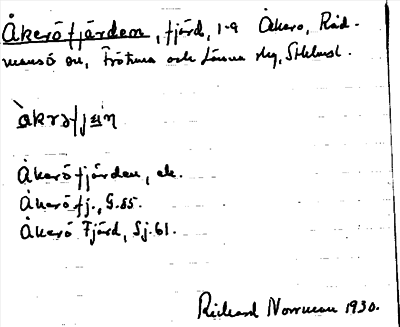 Åkeröfjärden, fjärd, 1-a Åkero, Råd-
mansö sn, Frötuna och Länna slg, Sthlmsl.
àkrəfjæ̣ṇ
Åkeröfjärden, ek.
Åkeröfj., G.55.
Åkerö Fjärd, Sj.61.
Rickard Norrman 1930.